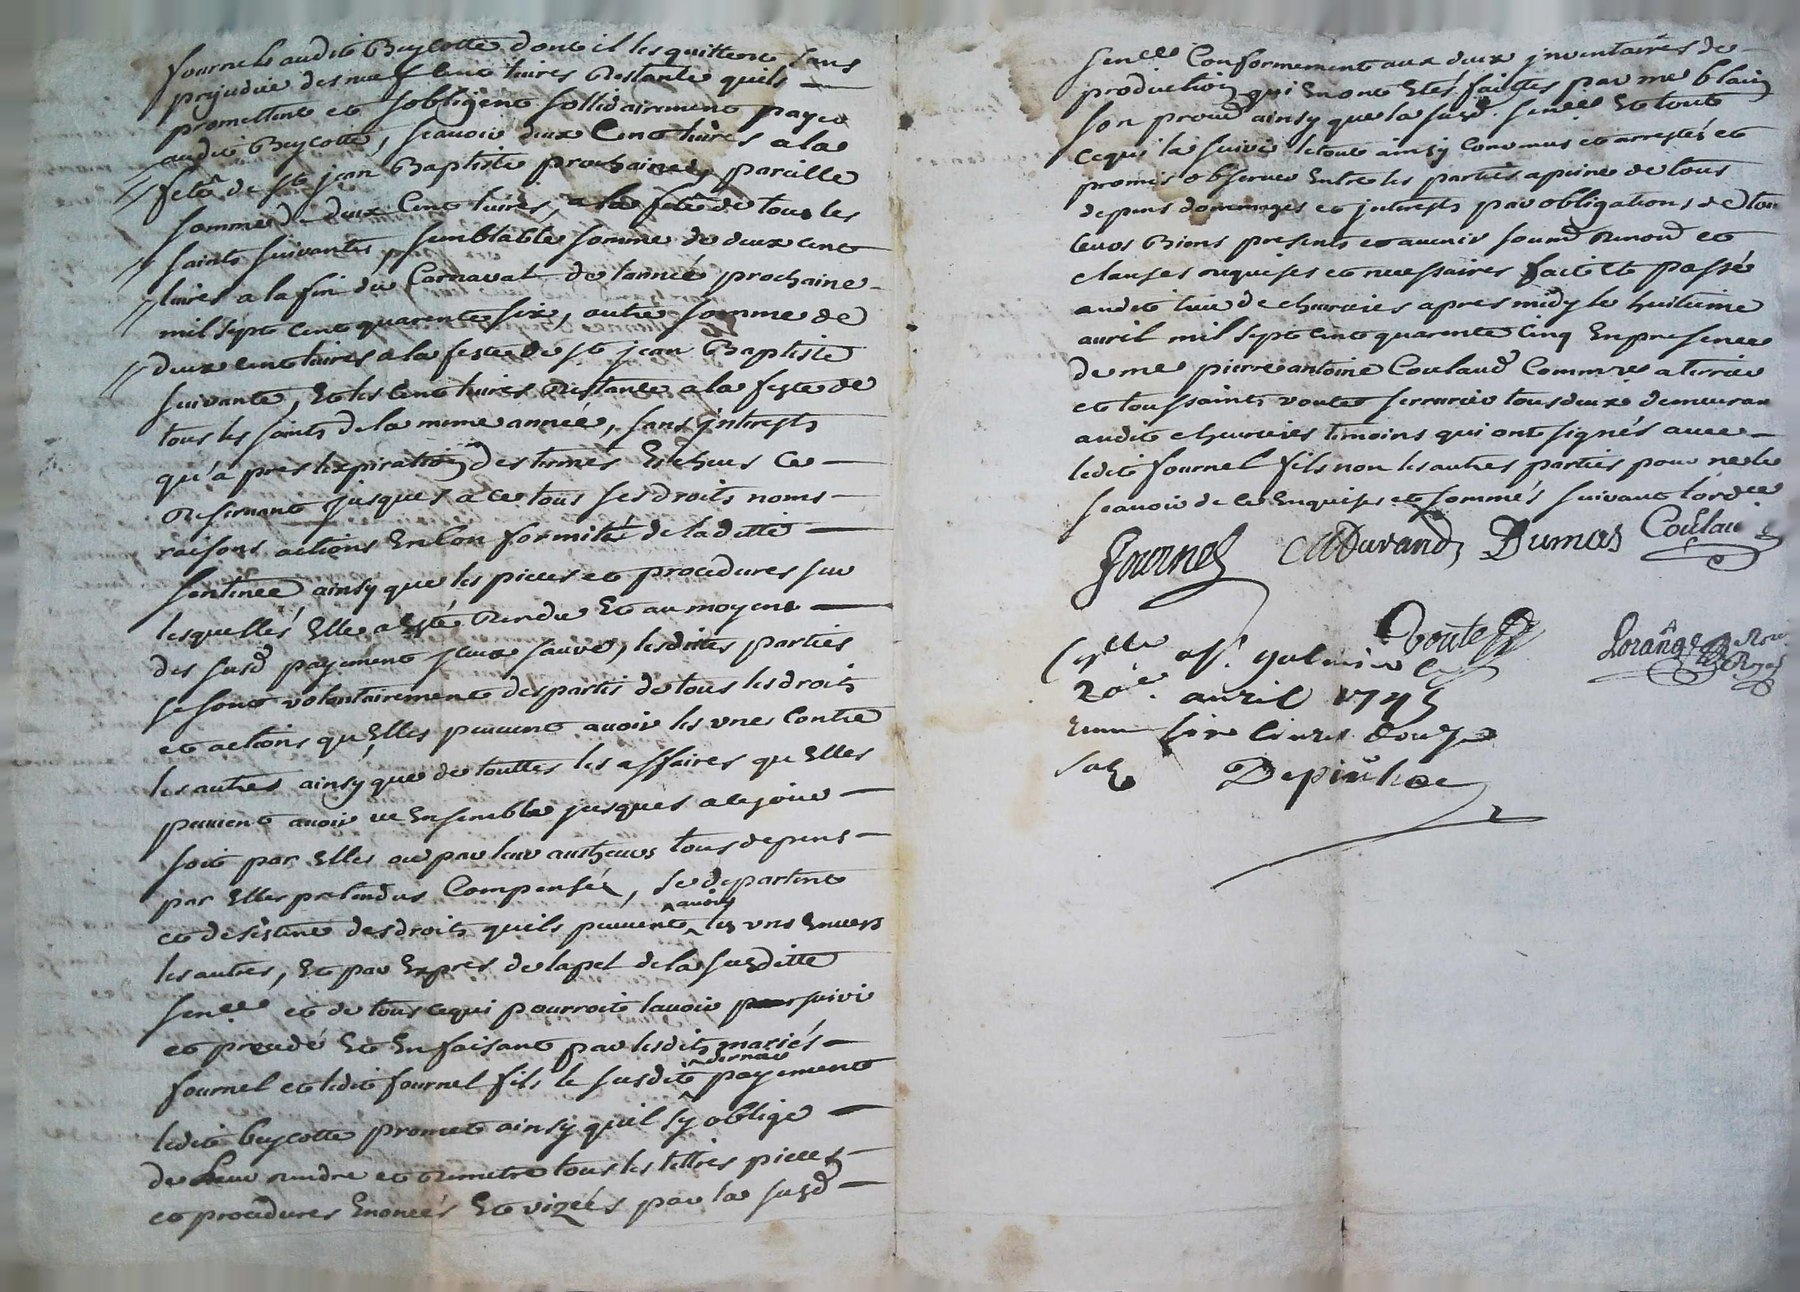 fournel audit Buycotte dont il les quittent sans
prejudice des neuf cent livres Restante quils
promettent et sobligent sollidairement payer
audit Buycotte, scavoir deux Cent livres a la
fete de st jean Baptiste prochaine, pareille
somme de deux Cent livres, a la fete de tous les
saints suivante, semblable somme de deux cent
livres a la fin du Carnaval de lannée prochaine
mil sept cent quarente six, autre somme de
deux cent livres a la feste de st jean Baptiste
suivante, Et les Cent livres Restante a la feste de
tous les saints de la meme année, sans jnterests
qu'a pres lexpiration des termes Escheus Ce
Reservant jusques a ce tous ses droits noms
raisons actions En Conformité de la ditte
sentence ainsy que les pieces et procedures sur
lesquelles Elle a Esté Rendue Et au moyens
des susd payement jceux sauvé, lesdittes parties
se sont volontairement despartis de tous les droits
et actions qu'Elles peuvent avoir les unes Contre
les autres ainsy que de touttes les affaires qu'Elles
peuvent avoir eu Ensemble jusques a ce jour
soit par Elles ou par leur autheurs tous depens
par Elles pretendus Compensés, se departent
et desistent des droits quils peuvent avoir les uns Envers
les autres, Et par Exprès de lapel de la susditte
senee et de tout cequi pourroit lavoir suivi
et precedé Et En faisant par lesdits mariés
fournel et ledit fournel fils le susdit dernier payement
ledit buycotte promet ainsy quil sy oblige
de leur rendre et Remetre tous les tittres pieces
et procedures Enoncés Et vizées par la susd
senee Conformement aux deux jnventaires de
production qui En ont Etés faittes par me blain
son procur ainsy que la susd. senee Et tout
cequi la suivi le tout ainsy Convenus et arrestés et
promis observer Entre les parties a peine de tous
depens dommages et jnterests par obligations de tous
leurs Biens presents et avenir soumd Renond et
clauses requises et necessaires fait Et passé
audit lieu de chervies apres midy le huitieme
avril mil sept cent quarente Cinq En presence
de me pierre antoine Coulaud Commres a terrier
et toussaints voutes serrurier tous deux demeurant
audit chervies temoins qui ont signés avec
ledit fournel fils non les autres parties pour ne le
scavoir de ce Enquises et sommés suivant lordce
Fournel MDurand Dumas Coulaud
Voutes Lorange Nore Royal
20e. avril 1745
livres douze
sols Depinhac